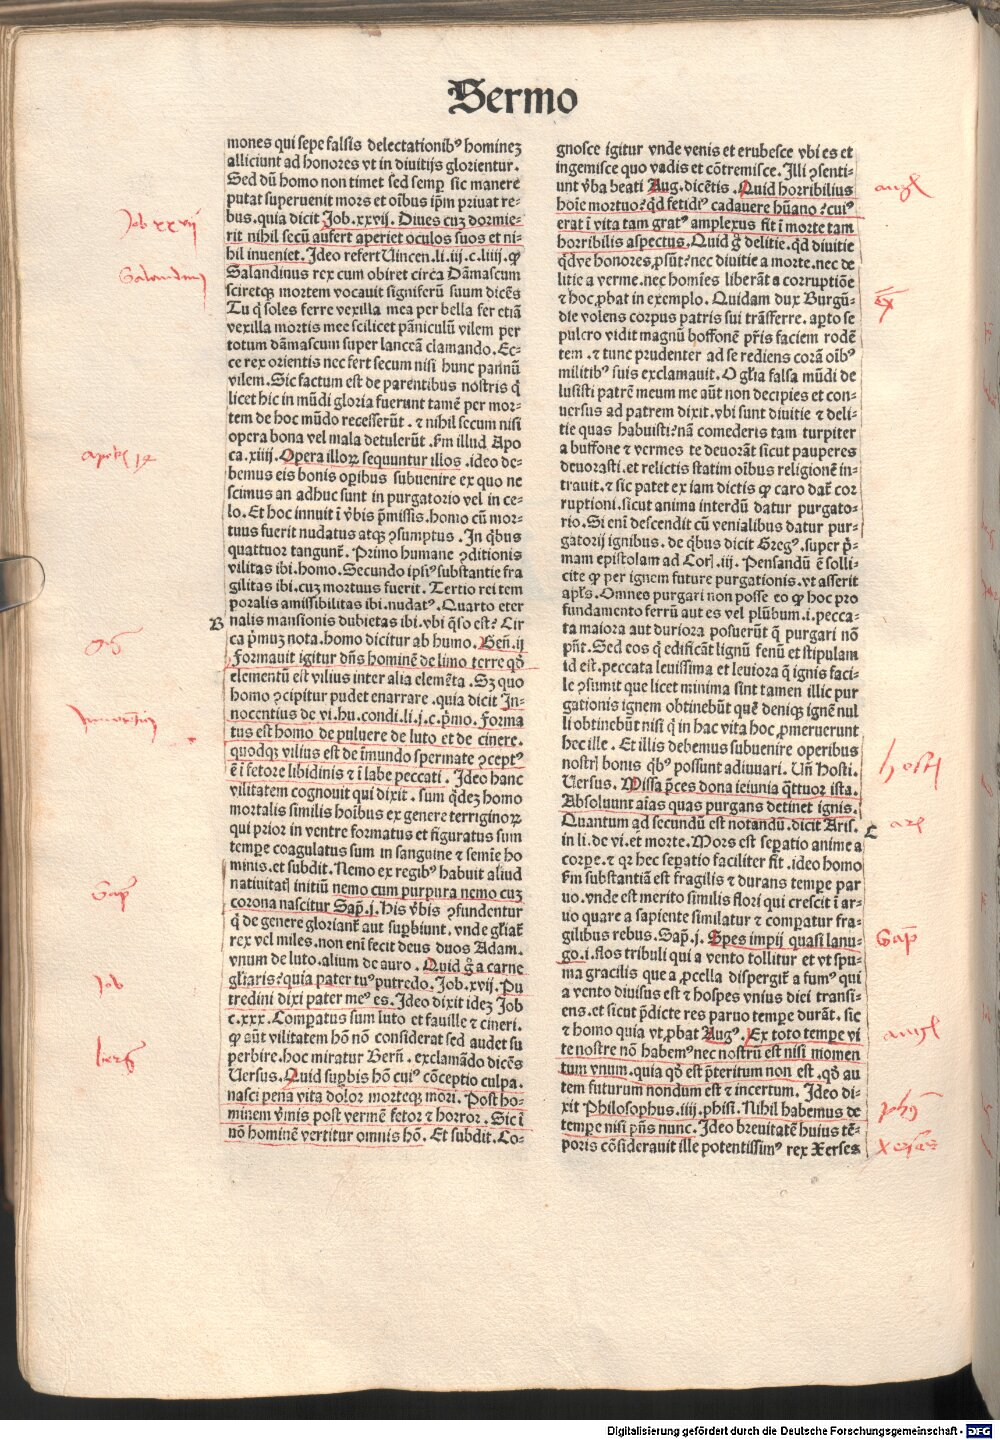 Sermo
mones qui sepe falsis delectationibꝰ hominez
alliciunt ad honores vt in diuitijs glorientur.
Sed dū homo non timet sed semꝑ sic manere
putat superuenit mors et oībus ip̄m priuat re-
bus. quia dicit Job. xxvij. Diues cuz dormie-
rit nihil secū aufert aperiet oculos suos et ni-
hil inueniet. Ideo refert Uincen. li. iij. c. liiij. ꝙ
Salandinus rex cum obiret circa Dāmascum
sciretqꝫ mortem vocauit signiferū suum dicēs
Tu q̄ soles ferre vexilla mea per bella fer etiā
vexilla mortis mee scilicet pāniculū vilem per
totum dāmascum super lanceā clamando. Ec-
ce rex orientis nec fert secum nisi hunc pannū
vilem. Sic factum est de parentibus nostris q̄
licet hic in mūdi gloria fuerunt tamē per mor-
tem de hoc mūdo recesserūt. ⁊ nihil secum nisi
opera bona vel mala detulerūt. ẜm illud Apo
ca. xiiij. Opera illoꝝ sequuntur illos. ideo de-
bemus eis bonis oꝑibus subuenire ex quo ne
scimus an adhuc sunt in purgatorio vel in ce-
lo. Et hoc innuit ī v̄bis p̄missis. homo cū mor-
tuus fuerit nudatus atqꝫ ꝯsumptus. In q̄bus
quattuor tangunt̄. Primo humane ꝯditionis
vilitas ibi. homo. Secundo ipsiꝰ substantie fra
gilitas ibi. cuz mortuus fuerit. Tertio rei tem
poralis amissibilitas ibi. nudatꝰ. Quarto eter
B nalis mansionis dubietas ibi. vbi q̄so est? Cir
ca p̄muz nota. homo dicitur ab humo. Geñ. ij
Formauit igitur dn̄s hominē de limo terre qd̄
elementū est vilius inter alia elemēta. Sz quo
homo ꝯcipitur pudet enarrare. quia dicit In-
nocentius de vi. hu. condi. li. j. c. p̄mo. Forma
tus est homo de puluere de luto et de cinere.
quodqꝫ vilius est de īmundo spermate ꝯceptꝰ
ē ī fetore libidinis ⁊ ī labe peccati. Ideo hanc
vilitatem cognouit qui dixit. sum q̄dez homo
mortalis similis hoībus ex genere terriginoꝝ
qui prior in ventre formatus et figuratus sum
temꝑe coagulatus sum in sanguine ⁊ semīe ho
minis. et subdit. Nemo ex regibꝰ habuit aliud
natiuitatꝭ initiū nemo cum purpura nemo cuz
corona nascitur Sap̄. j. His v̄bis ꝯfundentur
q̄ de genere gloriant̄ aut suꝑbiunt. vnde gl̄iat̄
rex vel miles. non enī fecit deus duos Adam.
vnum de luto. alium de auro. Quid g̊ a carne
gl̄iaris? quia pater tuꝰ putredo. Job. xvij. Pu
tredini dixi pater meꝰ es. Ideo dixit idez Job
c. xxx. Comꝑatus sum luto et fauille ⁊ cineri.
ꝙ aūt vilitatem hō nō considerat sed audet su
perbire. hoc miratur Berñ. exclamādo dicēs
Uersus. Quid suꝑbis hō cuiꝰ cōceptio culpa.
nasci pena vita dolor mortēqꝫ mori. Post ho-
minem v̄mis post vermē fetor ⁊ horror. Sic ī
nō hominē vertitur omnis hō. Et subdit. Co-
gnosce igitur vnde venis et erubesce vbi es et
ingemisce quo vadis et cōtremisce. Illi ꝯsenti-
unt v̄ba beati Aug. dicētis. Quid horribilius
hoīe mortuo? qd̄ fetidiꝰ cadauere hūano? cuiꝰ
erat ī vita tam gratꝰ amplexus fit ī morte tam
horribilis aspectus. Quid g̊ delitie. qd̄ diuitie
qd̄ve honores ꝓsūt? nec diuitie a morte. nec de
litie a verme. nec homīes liberāt a corruptiōe
⁊ hoc ꝓbat in exemplo. Quidam dux Burgū-
die volens corpus patris sui trāsferre. aꝑto se
pulcro vidit magnū boffonē pr̄is faciem rodē
tem. ⁊ tunc prudenter ad se rediens corā oībꝰ
militibꝰ suis exclamauit. O gl̄ia falsa mūdi de
lusisti patrē meum me aūt non decipies et con-
uersus ad patrem dixit. vbi sunt diuitie ⁊ deli-
tie quas habuisti? nā comederis tam turpiter
a buffone ⁊ vermes te deuorāt sicut pauperes
deuorasti. et relictis statim oībus religionē in-
trauit. ⁊ sic patet ex iam dictis ꝙ caro dat̄ cor
ruptioni. sicut anima interdū datur purgato-
rio. Si enī descendit cū venialibus datur pur-
gatorij ignibus. de q̄bus dicit Gregꝰ. super p̄-
mam epistolam ad Corꝭ. iij. Pensandū ē solli-
cite ꝙ per ignem future purgationis. vt asserit
apl̄s. Omnes purgari non posse eo ꝙ hoc pro
fundamento ferrū aut es vel plūbum. i. pecca-
ta maiora aut duriora posuerūt q̄ purgari nō
pn̄t. Sed eos q̄ edificāt lignū fenū et stipulam
id est. peccata leuissima et leuiora q̄ ignis faci-
le ꝯsumit que licet minima sint tamen illic pur
gationis ignem obtinebūt quē deniqꝫ ignē nul
li obtinebūt nisi q̄ in hac vita hoc ꝓmeruerunt
hec ille. Et illis debemus subuenire operibus
nostrꝭ bonis q̄bꝰ possunt adiuuari. Un̄ Hosti.
Uersus. Missa p̄ces dona ieiunia q̄ttuor ista.
Absoluunt aīas quas purgans detinet ignis.
C Quantum ad secundū est notandū. dicit Aris.
in li. de vi. et morte. Mors est seꝑatio anime a
corꝑe. ⁊ qꝛ hec seꝑatio faciliter fit. ideo homo
ẜm substantiā est fragilis ⁊ durans temꝑe par
uo. vnde est merito similis flori qui crescit ī ar-
uo quare a sapiente similatur ⁊ comꝑatur fra-
gilibus rebus. Sap̄. j. Spes impij quasi lanu-
go. i. flos tribuli qui a vento tollitur et vt spu-
ma gracilis que a ꝓcella dispergit̄ a fumꝰ qui
a vento diuisus est ⁊ hospes vnius diei transi-
ens. et sicut p̄dicte res paruo temꝑe durāt. sic
⁊ homo quia vt ꝓbat Augꝰ. Ex toto temꝑe vi
te nostre nō habemꝰ nec nostrū est nisi momen
tum vnum. quia qd̄ est p̄teritum non est. qd̄ au
tem futurum nondum est ⁊ incertum. Ideo di-
xit Philosophus. iiij. phisi. Nihil habemus de
temꝑe nisi pn̄s nunc. Ideo breuitatē huius tē-
poris cōsiderauit ille potentissimꝰ rex Xerses
Job xxvij
Sap̄
Job
Sap̄
Xerses
Digitalisierung gefördert durch die Deutsche Forschungsgemeinschaft - DFG